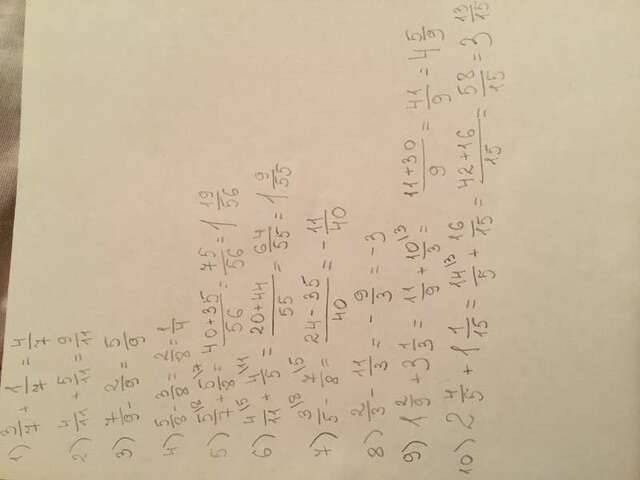 1) 3/7 + 1/7 = 4/7
2) 4/11 + 5/11 = 9/11
3) 7/9 - 2/9 = 5/9
4) 5/8 - 3/8 = 2/8 = 1/4
5) 5\8/7 + 5\7/8 = 40+35/56 = 75/56 = 1 19/56
6) 4\5/11 + 4\11/5 = 20+44/55 = 64/55 = 1 9/55
7) 3\8/5 - 7\5/8 = 24-35/40 = - 11/40
8) 2/3 - 11/3 = - 9/3 = -3
9) 1 2/9 + 3 1/3 = 11/9 + 10\3/3 = 11+30/9 = 41/9 = 4 5/9
10) 2 4/5 + 1 1/15 = 14\3/5 + 16/15 = 42+16/15 = 58/15 = 3 13/15